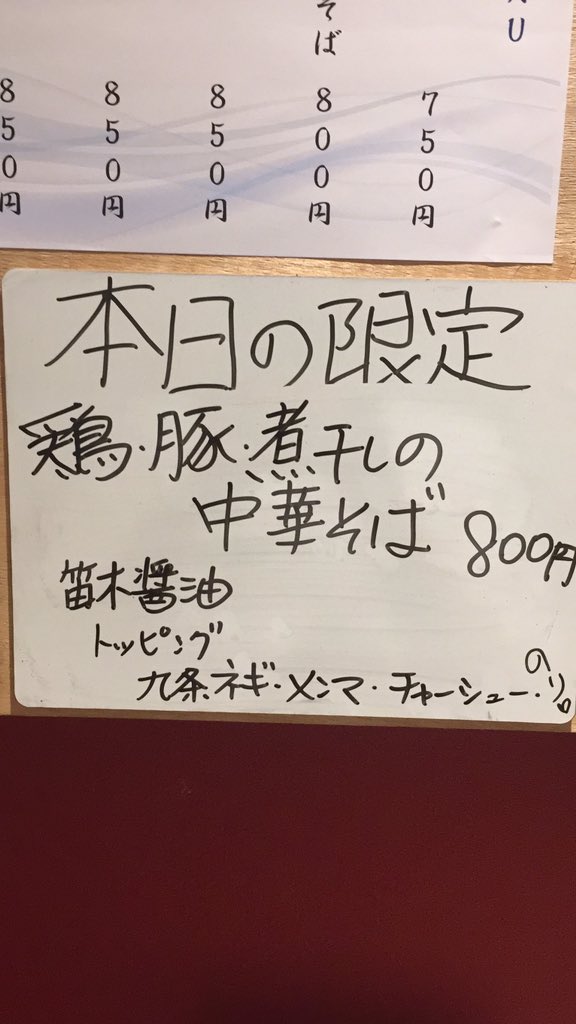 U
750円
そば 800円
850円
850円
850円
本日の限定
鶏・豚・煮干しの
中華そば 800円
笛木醤油
トッピング
九条ネギ・メンマ・チャーシュー・のり。